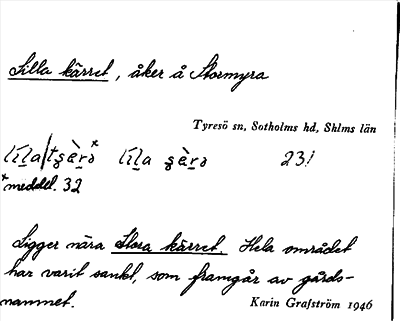 Lilla kärret, åker å Stormyra
Tyresö sn, Sotholms hd, Sthlms län
231
*meddel. 32
Ligger nära Stora kärret. Hela området
har varit sankt, som framgår av gårds-
namnet.
Karin Grafström 1946